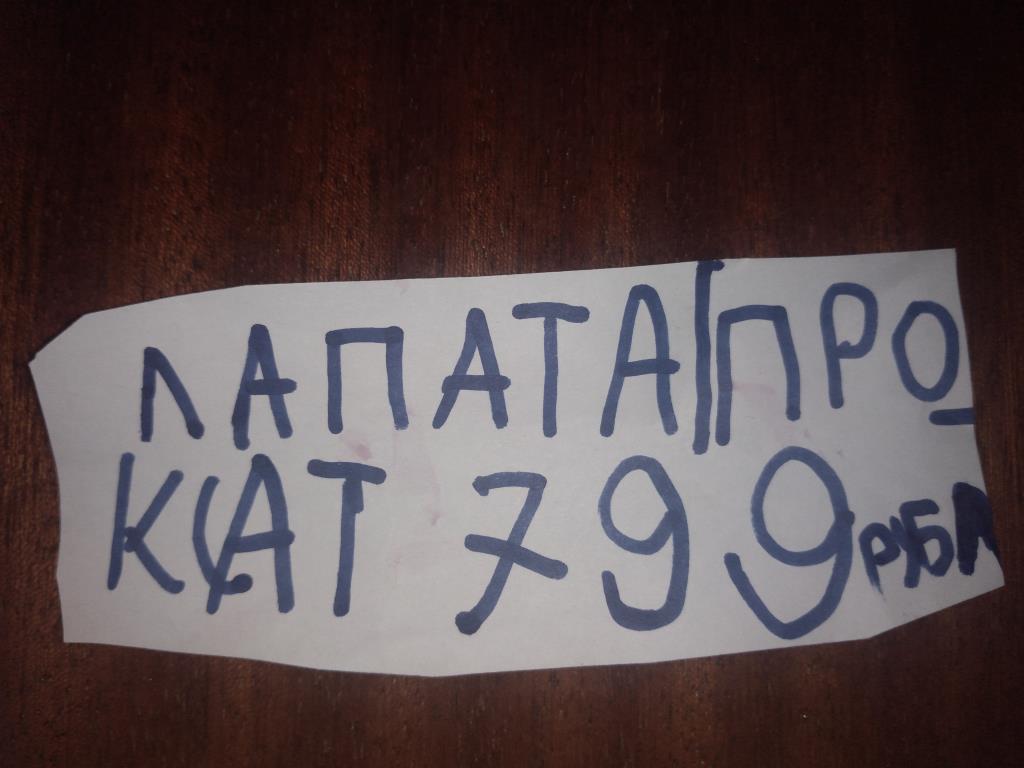 ЛАПАТА|ПРО-
КАТ 799 РУБЛ